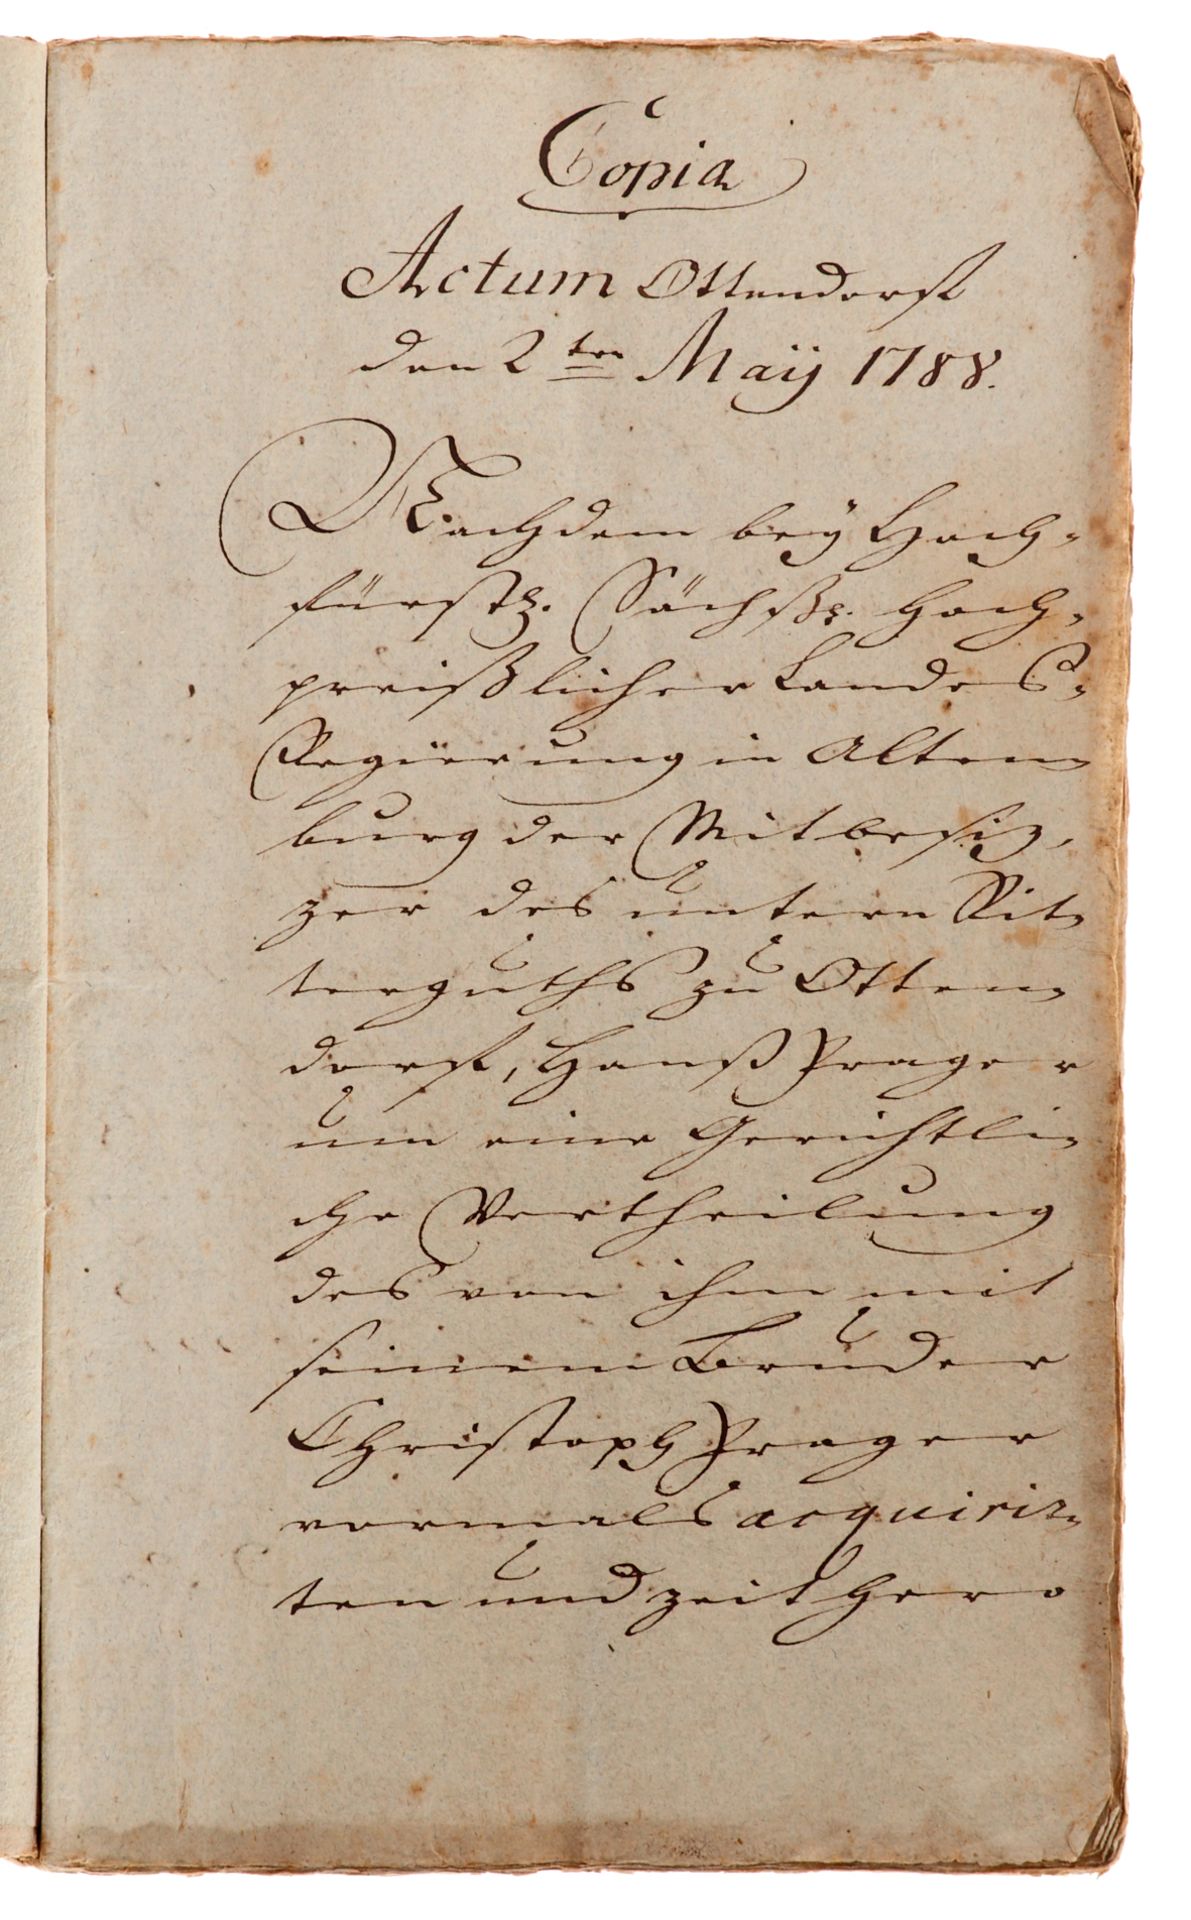 Copia
Actum Ottendorf
den 2ten Maÿ 1788.
Nachdem beÿ Hoch-
fürstl. Sächßl. hoch-
preißlicher Landes-
Regierung in Alten-
burg der Mitbesiz-
zer des untern Rit-
terguths zu Otten-
dorf, Hanß Prager
um eine Gerichtli-
che Vertheilung
des von ihm mit
seinem Bruder
Christoph Prager
vormals acquirir-
ten und zeithero